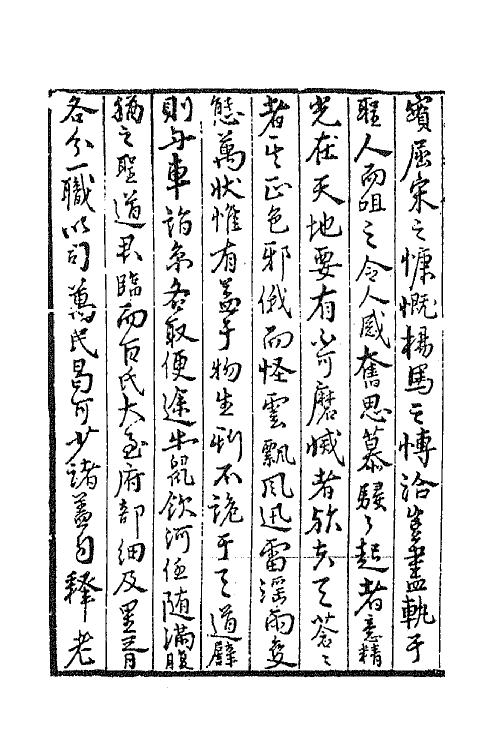 賓屈宋之慷慨楊馬之愽洽豈盡軌于
聖人而咀之令人感奮思慕駸々起者意精
光在天地要有不可磨滅者欤夫天蒼々
者其正色邪俄而怪雲飄風迅雷滛雨变
態萬狀惟有益于物生斯不詭于天道譬
則舟車詣京各取便途牛鼠飲河任随滿腹
猶之聖道君臨而百氏大至府部細及里胥
各分一職以司萬民曷可少諸葢自釋老